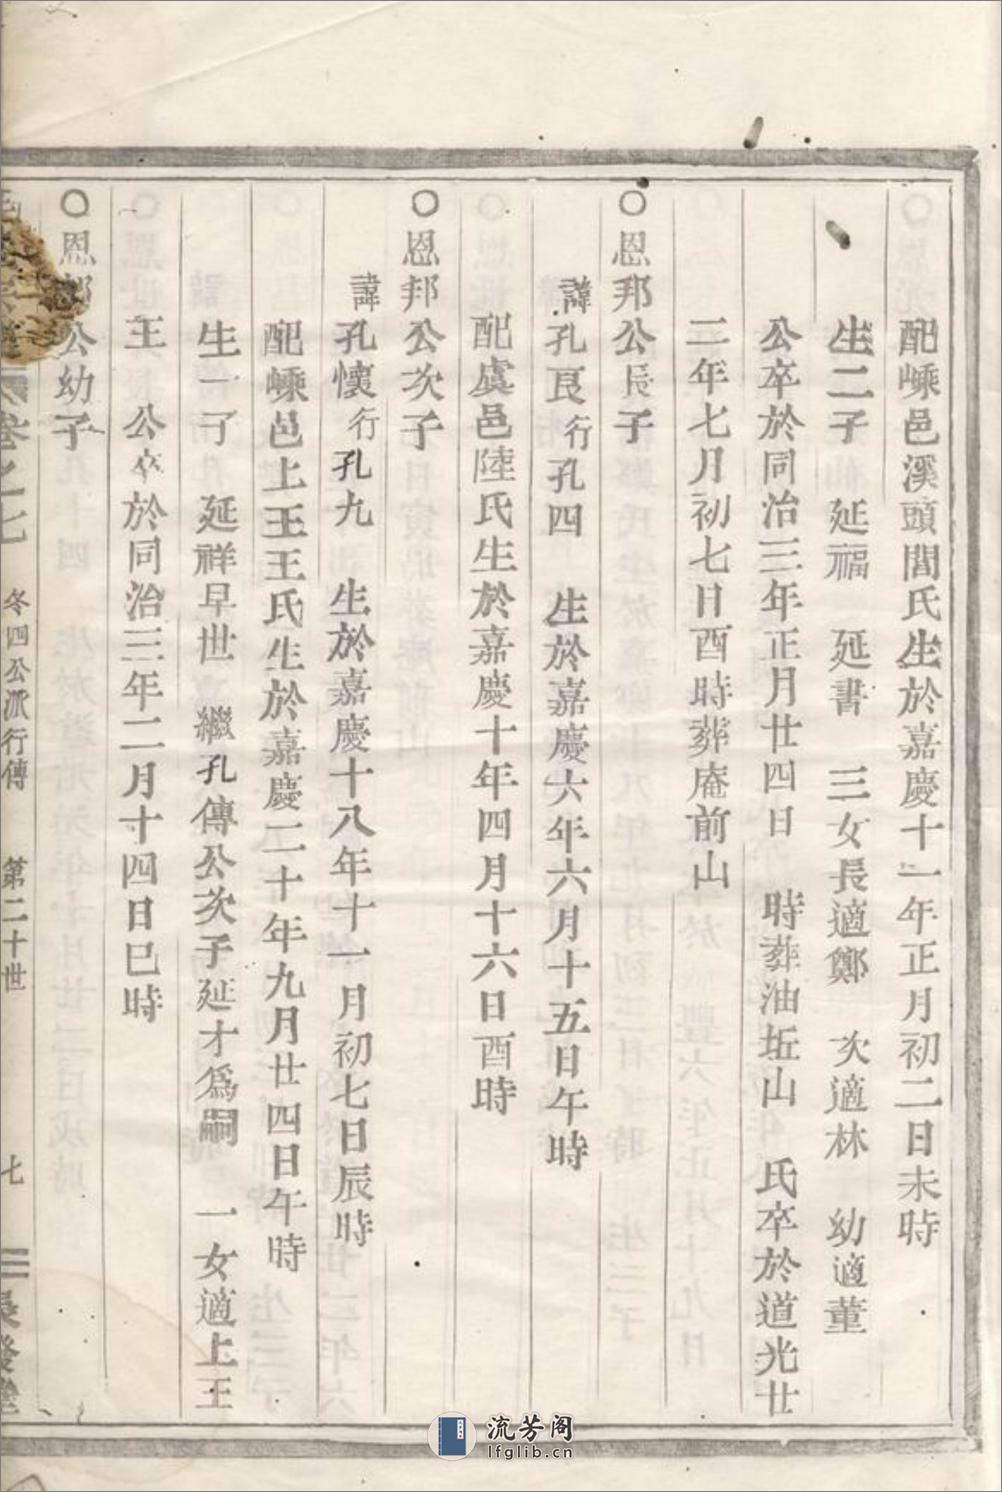 配嵊邑溪頭閭氏生於嘉慶十一年正月初二日未時
生二子 延福 延書 三女長適鄭 次適林 幼適董
公卒於同治三年正月廿四日 時葬油坵山 氏卒於道光廿
二年七月初七日酉時葬庵前山
○恩邦公長子
諱孔良行孔四 生於嘉慶六年六月十五日午時
配虞邑陸氏生於嘉慶十年四月十六日酉時
○恩邦公次子
諱孔懷行孔九 生於嘉慶十八年十一月初七日辰時
配嵊邑上王王氏生於嘉慶二十年九月廿四日午時
生一子 延祥早世 繼孔傳公次子延才爲嗣 一女適上王
王 公卒於同治三年二月十四日巳時
○恩邦公幼子
卷之七 冬四公派行傳 第二十世 七
流芳阁
lfglib.cn